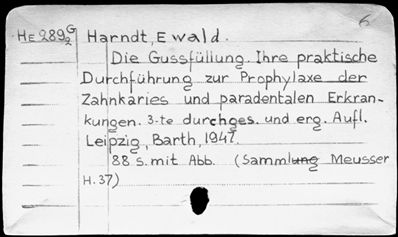 6
HE 289 G/2 Harndt, Ewald.
Die Gussfüllung. Ihre praktische
Durchführung zur Prophylaxe der
Zahnkaries und paradentalen Erkran-
kungen. 3-te durchges. und erg. Aufl.
Leipzig, Barth, 1947.
88 s. mit Abb. (Sammlung Meusser
H. 37)